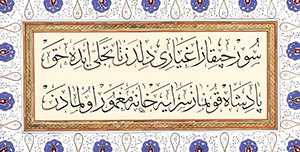 سور چیقار اغیاری دلدن تا تجلی ایده حق
پادشاه قونماز سرایه خانه معمور اولمادن